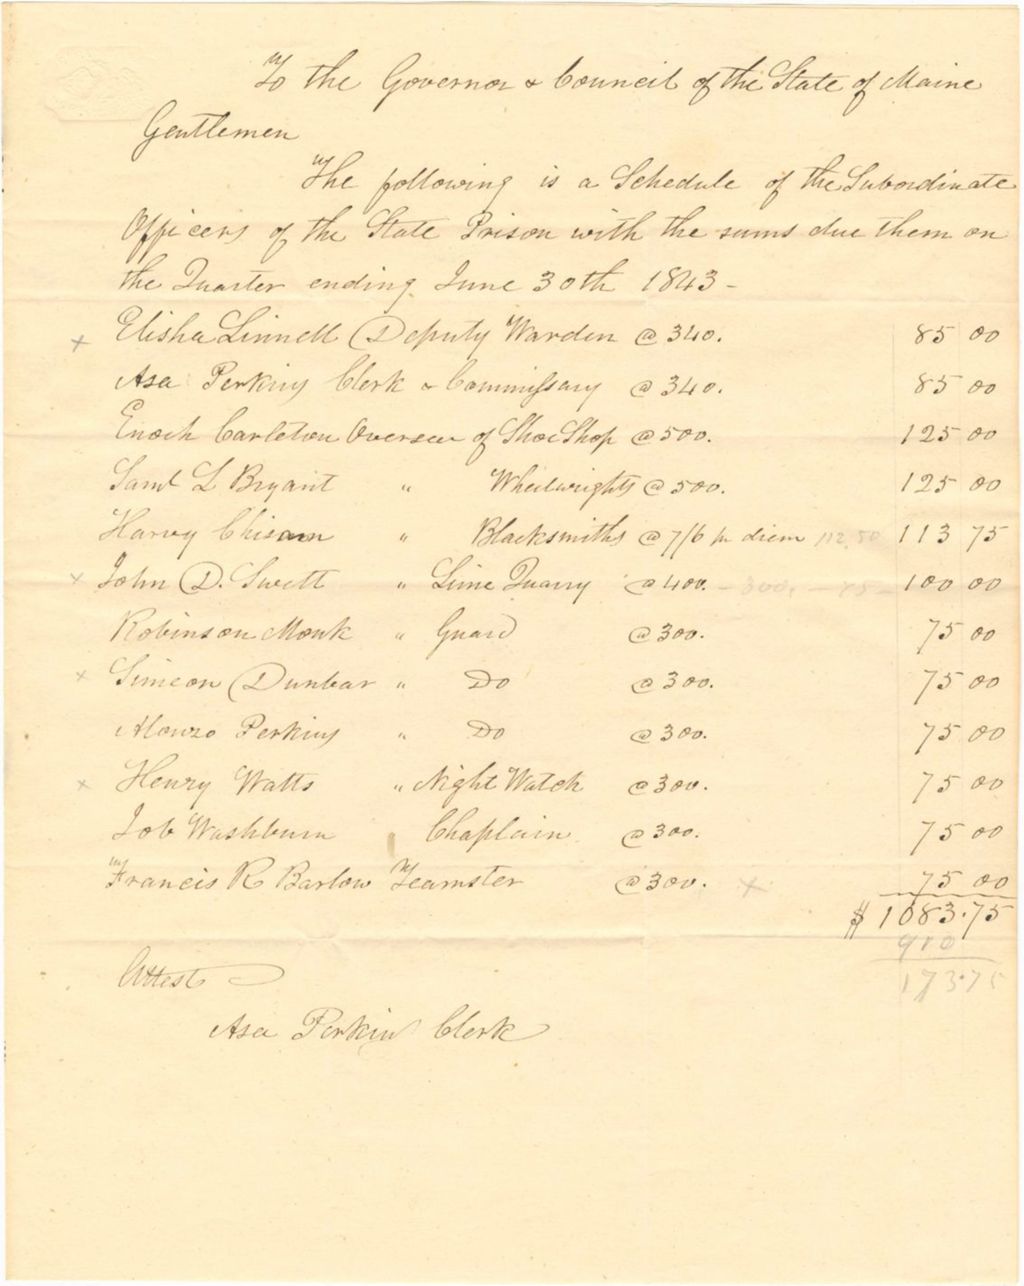 To the Governor & Council of the State of Maine
Gentlemen
The following is a Schedule of the Subordinate
Officers of the State Prison with the sums due them on
the Quarter ending June 30th 1843 -
x Elisha Linnell Deputy Warden @ 340. 85 00
Asa Perkins Clerk & Commissary @ 340. 85 00
Enoch Carleton Overseer of Shoe Shop @ 500. 125 00
Saml L Bryant " Wheelwrights @ 500. 125 00
Harvy Chisam " Blacksmiths @ 7/6 pr diem 112.50 113 75
x John D. Swett " Lime Quarry @ 400. - 300. - 75 - 100 00
Robinson Monk " Guard @ 300. 75 00
x Simeon Dunbar " Do @ 300. 75 00
Alonzo Perkins " Do @ 300. 75 00
x Henry Watts " Night Watch @ 300. 75 00
Job Washburn " Chaplain @ 300. 75 00
Francis R Barlow Teamster @ 300. x 75 00
$ 1083.75
910
173.75
Attest
Asa Perkins Clerk